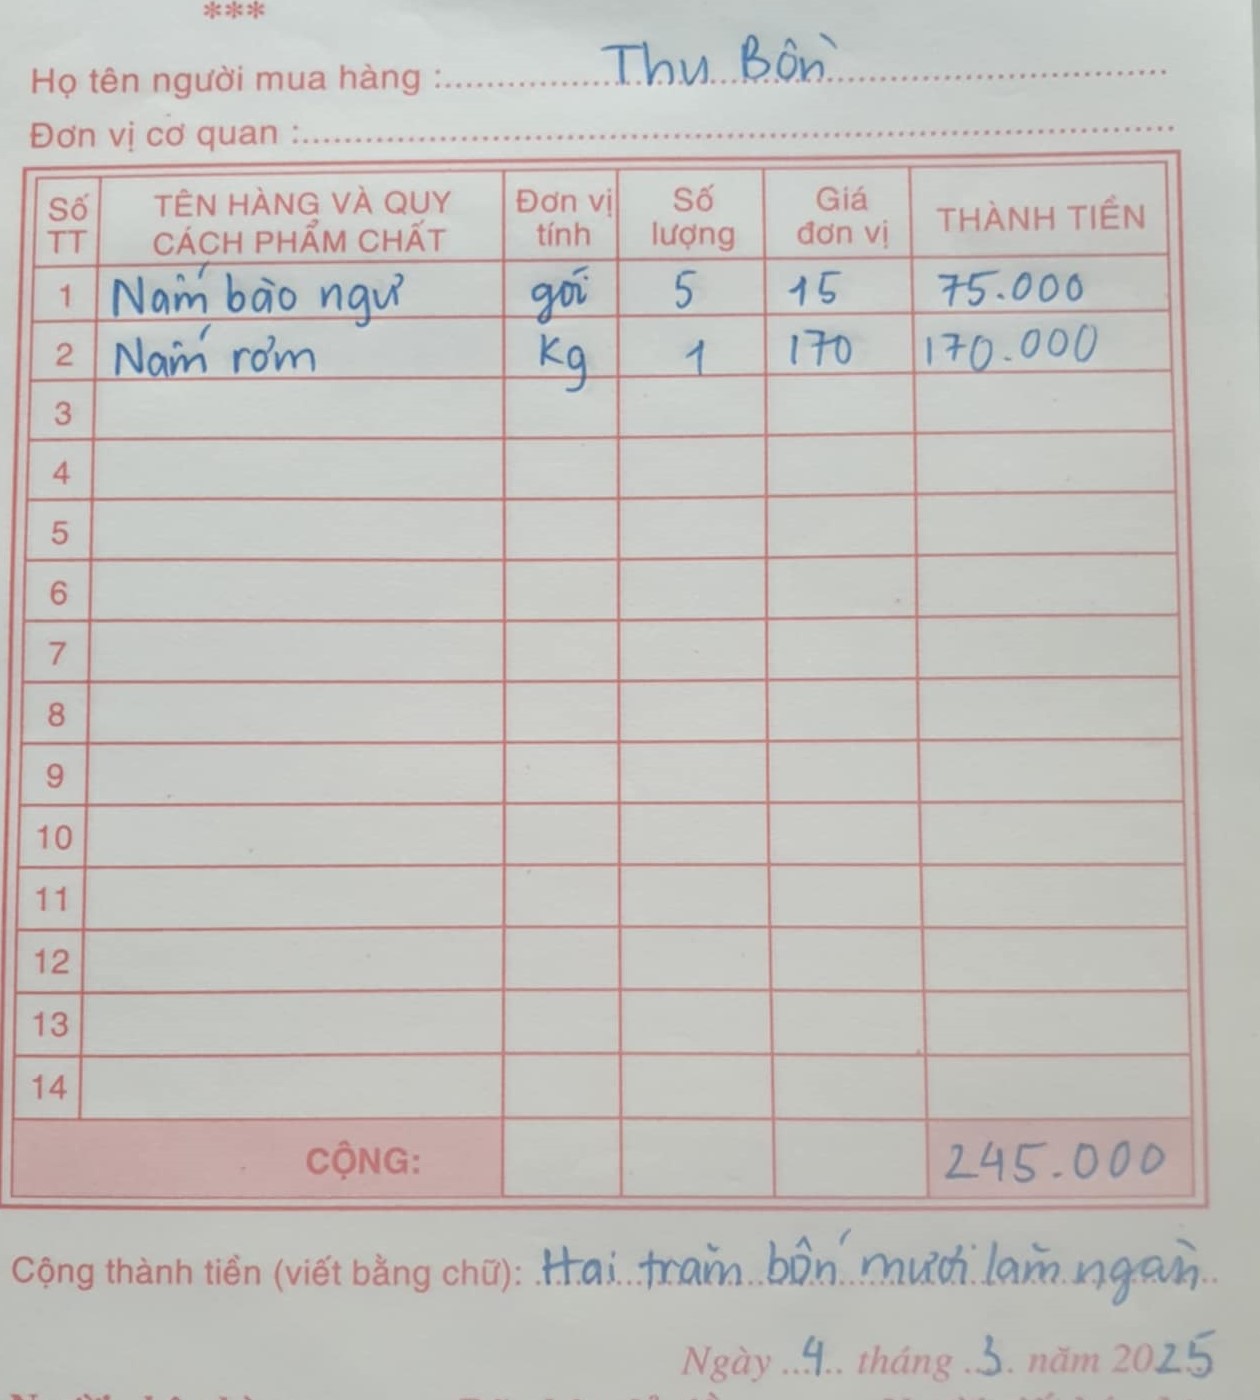 ***
Họ tên người mua hàng : Thu Bồn
Đơn vị cơ quan :
Số TT TÊN HÀNG VÀ QUY CÁCH PHẨM CHẤT Đơn vị tính Số lượng Giá đơn vị THÀNH TIỀN
1 Nấm bào ngư gói 5 15 75.000
2 Nấm rơm Kg 1 170 170.000
3
4
5
6
7
8
9
10
11
12
13
14
CỘNG: 245.000
Cộng thành tiền (viết bằng chữ): Hai trăm bốn mươi lăm ngàn
Ngày 4 tháng 3 năm 2025